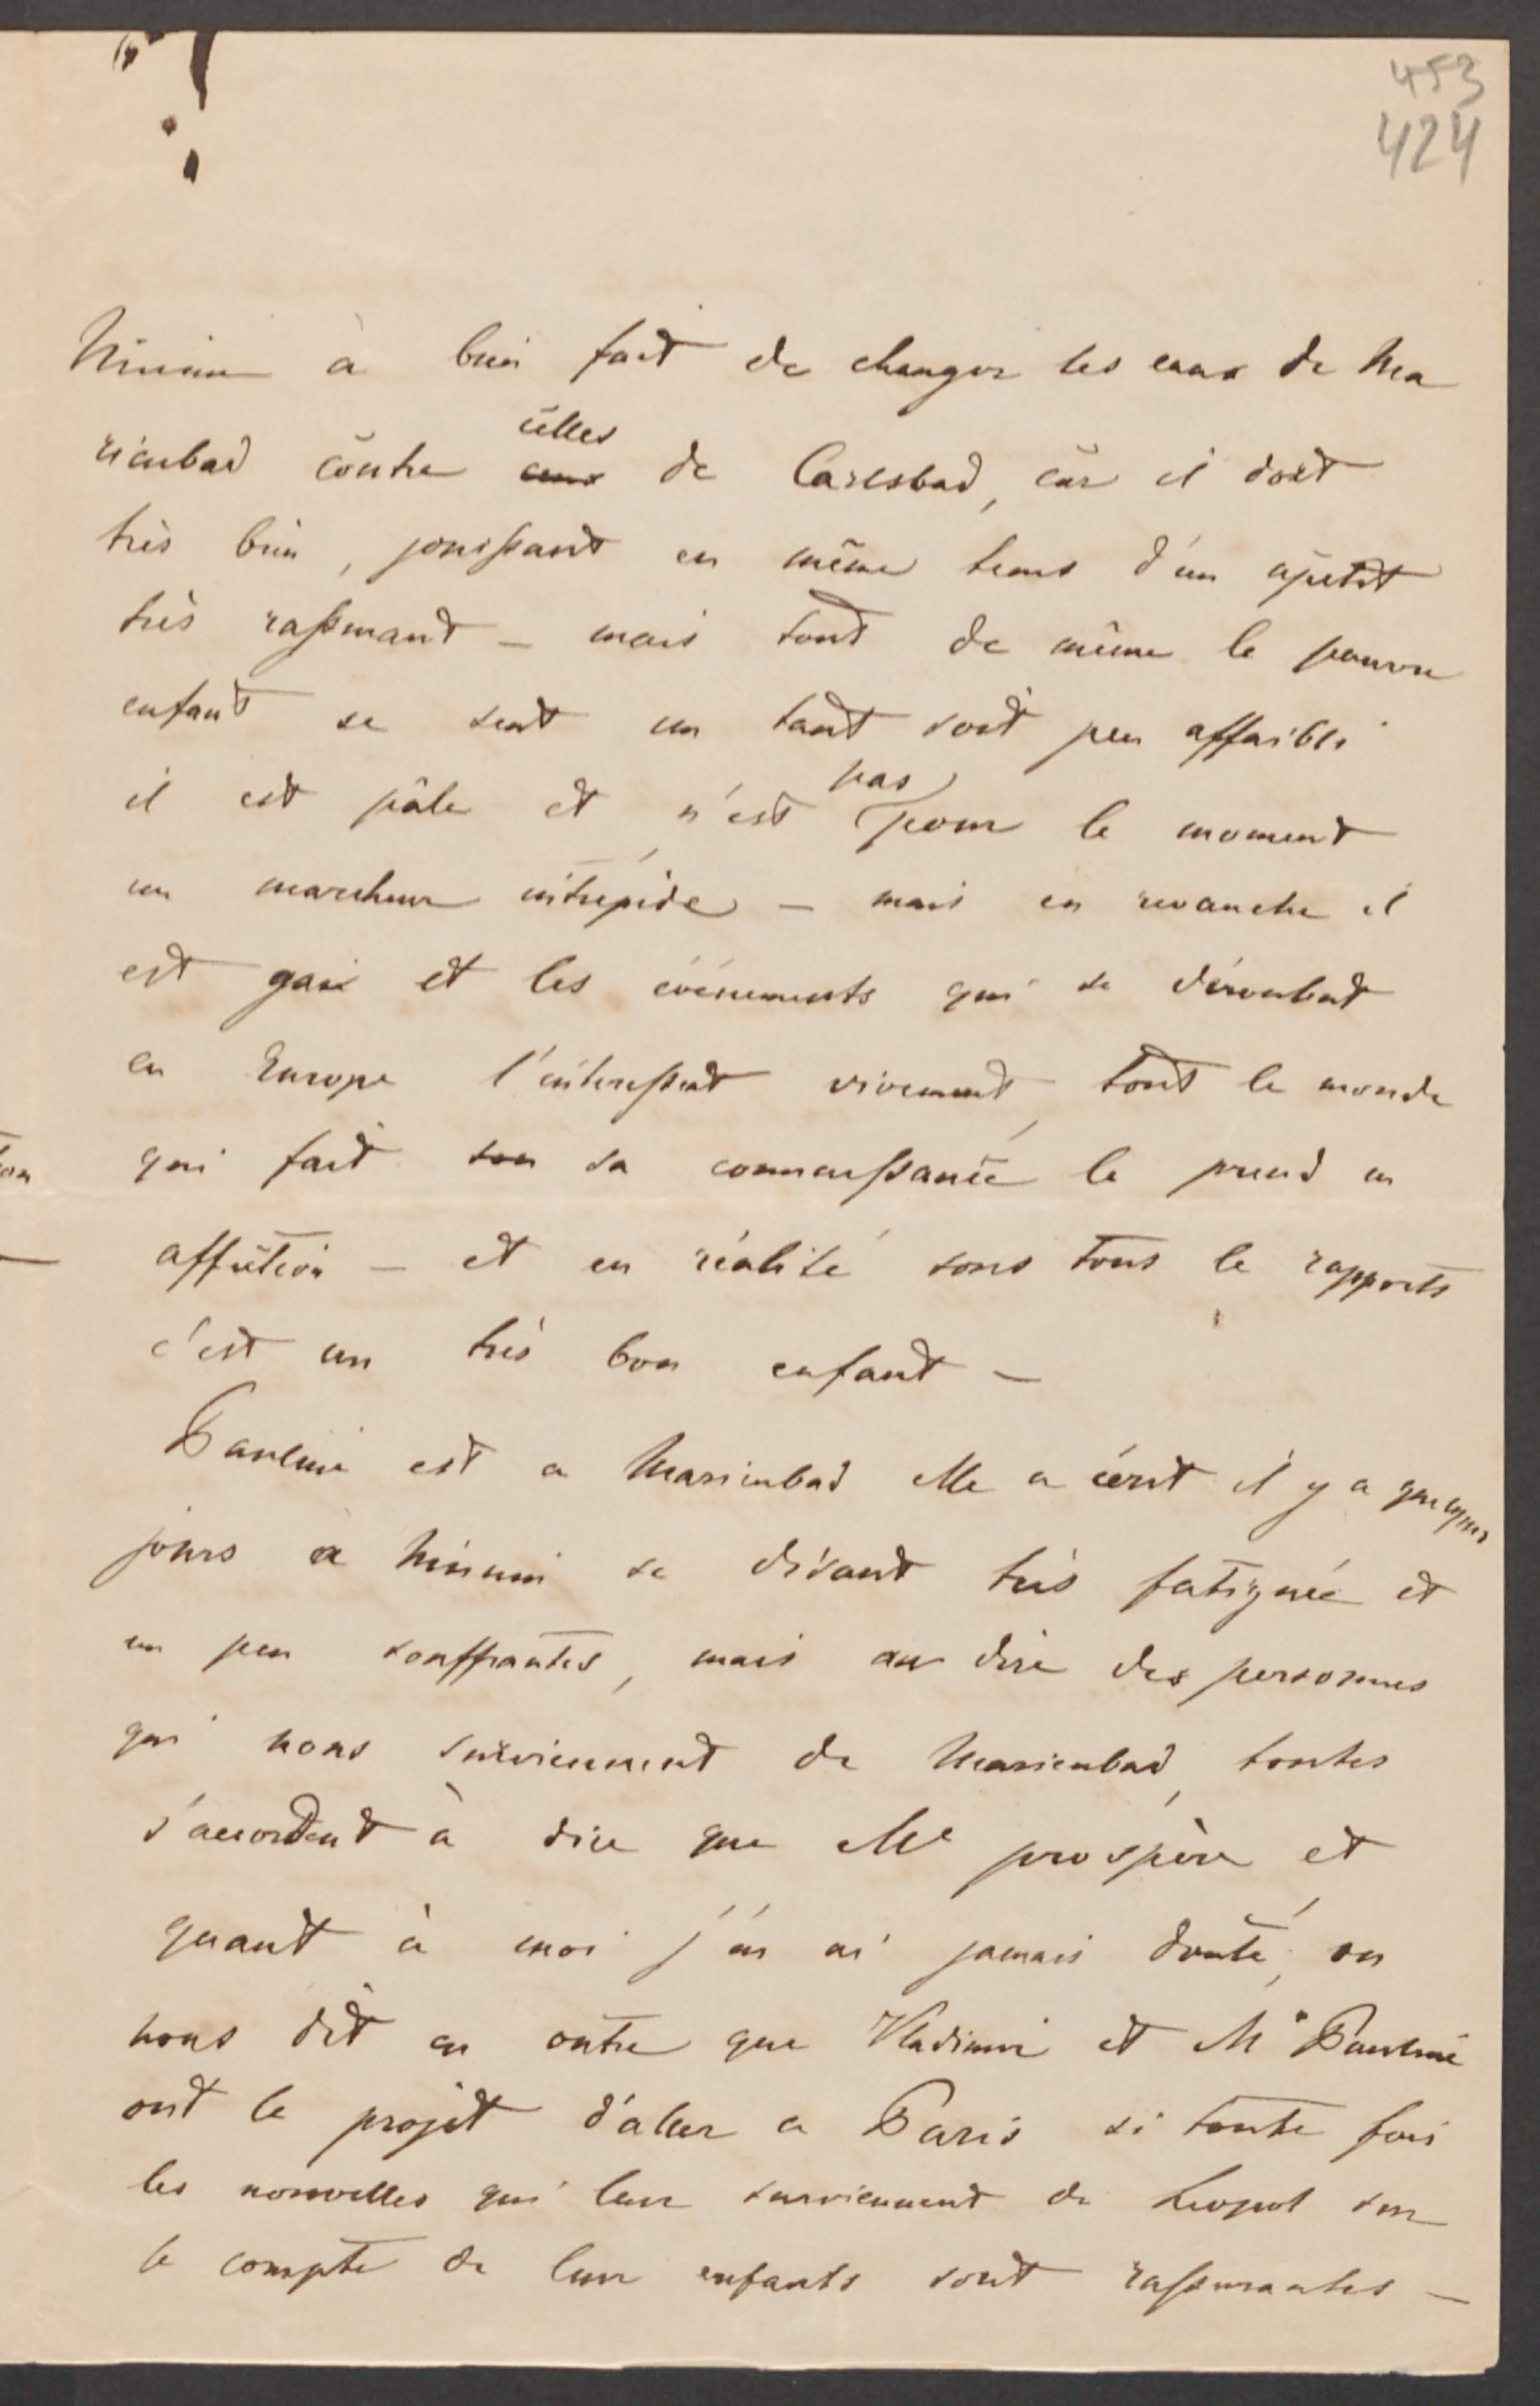 453
424
à bien fait de changer les eaux de Ma
rienbad contre ceux celles de Carlsbad, car il dort
très bien, jouissant en même tems d'un apetit
très rassurant – mais tout de même le pauvre
enfant se sent un tant soit peu affaibli
il est pâle et n'est pas pour le moment
un marcheur intrépide – mais en revanche il
est gai et les événements qui se déroulent
en Europe l'interessent vivement, tout le monde
qui fait son sa connaissance le prend en
affection – et en réalité sous tous le rapports
c'est un très bon enfant –
Pauline est a Marienbad elle a écrit il y a quelques
jours a se disant très fatiguée et
un peu souffrantes, mais au dire des personnes
qui nous surviennent de Marienbad, toutes
s'accordent à dire que elle prospère et
quant à moi j'en ai jamais douté, on
nous dit en outre que Vladimir et M Pauline
ont le projet d'aller a Paris si toute fois
les nouvelles qui leur surviennent de Leopol sur
le compte de leur enfants sont rassurantes –